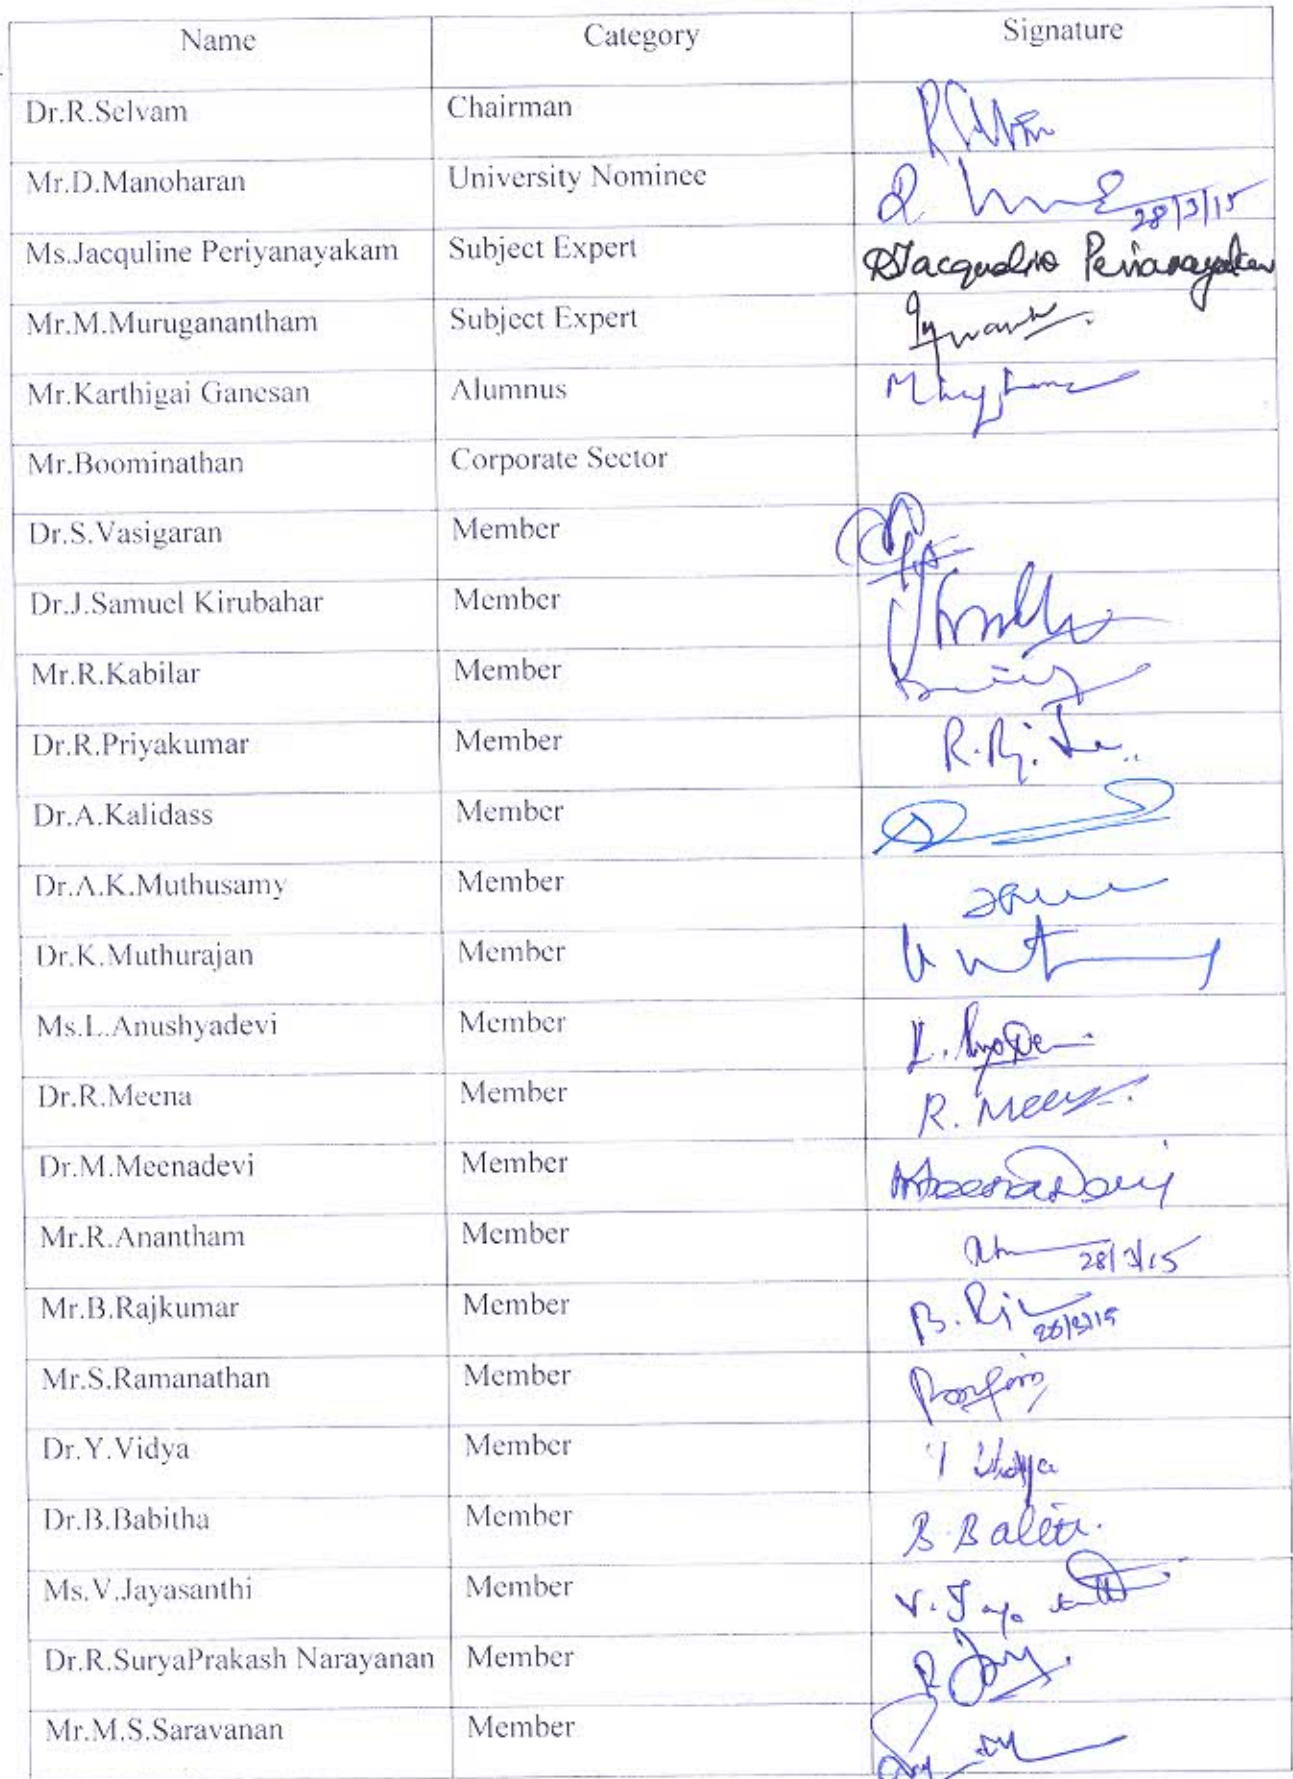 Name Category Signature
Dr.R.Selvam Chairman
Mr.D.Manoharan University Nominee 28/3/15
Ms.Jacquline Periyanayakam Subject Expert
Mr.M.Muruganantham Subject Expert
Mr.Karthigai Ganesan Alumnus
Mr.Boominathan Corporate Sector
Dr.S.Vasigaran Member
Dr.J.Samuel Kirubahar Member
Mr.R.Kabilar Member
Dr.R.Priyakumar Member
Dr.A.Kalidass Member
Dr.A.K.Muthusamy Member
Dr.K.Muthurajan Member
Ms.L.Anushyadevi Member
Dr.R.Meena Member R. Meena
Dr.M.Meenadevi Member MeenaDevi
Mr.R.Anantham Member 28/3/15
Mr.B.Rajkumar Member 28/3/15
Mr.S.Ramanathan Member
Dr.Y.Vidya Member Y Vidya
Dr.B.Babitha Member
Ms.V.Jayasanthi Member
Dr.R.SuryaPrakash Narayanan Member
Mr.M.S.Saravanan Member